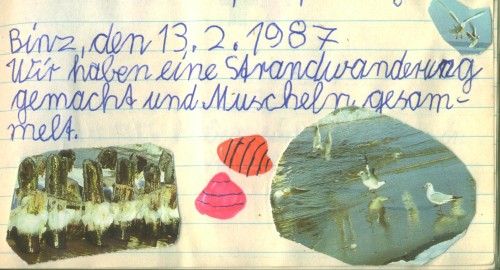 Binz, den 13.2.1987
Wir haben eine Strandwanderung
gemacht und Muscheln gesam-
melt.